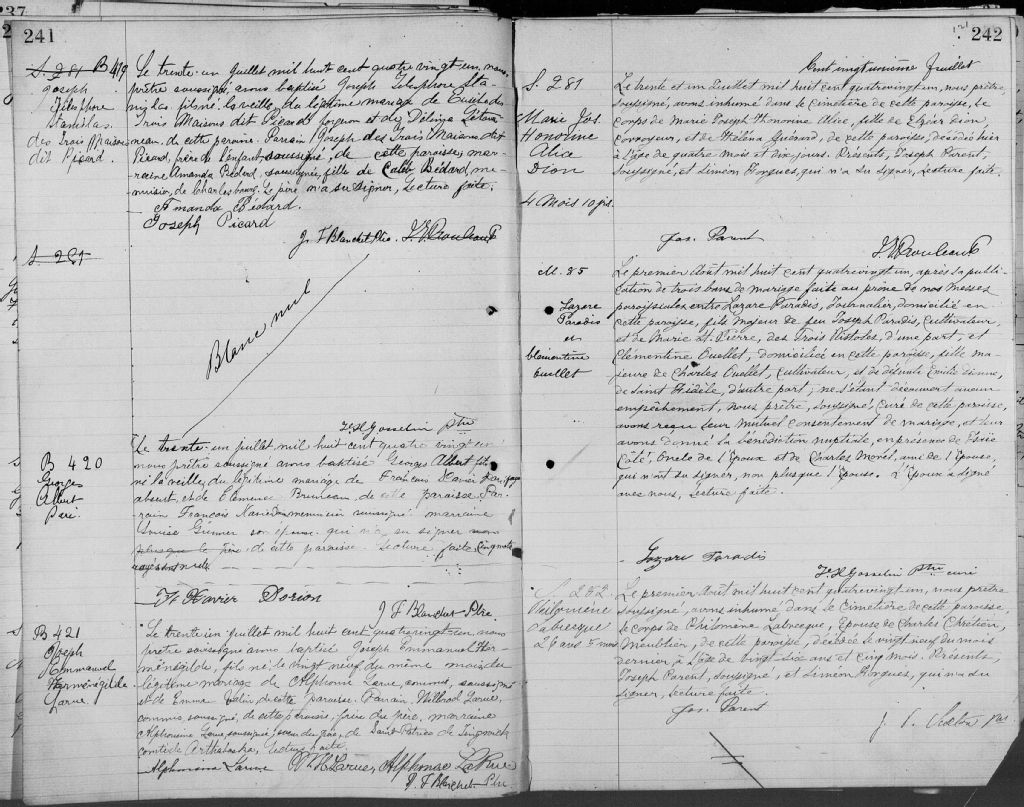 241
B 419
Joseph
Télesphore
Stanislas
des Trois Maisons
dit Picard
Le trente-un Juillet mil huit cent quatre vingt un, nous
prêtre soussigné, avons baptisé Joseph Télesphore Sta-
nislas, fils né la veille, du légitime mariage de
Trois Maisons dit Picard, et de Létour-
neau, de cette paroisse. Parrain Joseph des Trois Maisons dit
Picard, frère de l'enfant, soussigné, de cette paroisse, mar-
raine Amanda Bédard, soussignée, fille de Caleb Bédard, me-
nuisier, de Charlesbourg. Le père n'a su signer. Lecture faite.
Amanda Bédard.
Joseph Picard
J. F. Blanchet Ptre
S. 281
Blanc nul
F. H. Gosselin Ptre
B 420
Georges
Albert
Le trente-un juillet mil huit cent quatre vingt un
nous prêtre soussigné avons baptisé Georges Albert, fils
né la veille, du légitime mariage de François Xavier
absent, et de Clémence Bruneau, de cette paroisse. Par-
rain François Xavier Dorion menuisier soussigné marraine
Louise son épouse qui n'a su signer non
plus que le père de cette paroisse. Lecture faite. Cinq mots
rayés sont nuls
F. Xavier Dorion
J F Blanchet Ptre
B 421
Joseph
Emmanuel
Herménégilde
Larue
Le trente-un juillet mil huit cent quatrevingt-un, nous
prêtre soussigné avons baptisé Joseph Emmanuel Her-
ménégilde, fils né le vingt neuf du même mois, du
légitime mariage de Alphonse Larue, commis, soussigné
et de Emma de cette paroisse. Parrain Larue,
commis, soussigné, de cette paroisse, frère du père, marraine
Alphonsine Larue soussignée soeur du père, de Saint Patrice de Tingwick
comté de Arthabaska. Lecture faite.
Alphonsine Larue Larue, Alphonse LaRue
J. F Blanchet Ptre
242
Cent vingtunième feuillet
S. 281
Marie Jos.
Honorine
Alice
Dion
4 Mois 10 jrs
Le trente et un Juillet mil huit cent quatrevingt un, nous prêtre,
soussigné, avons inhumé dans le cimetière de cette paroisse, le
corps de Marie Joseph Honorine Alice, fille de Elzéar Dion,
Corroyeur, et de Héléna Guérard, de cette paroisse, décédée hier
à l'âge de quatre mois et dix jours. Présents, Joseph Parent,
soussigné, et Siméon Horgues, qui n'a su signer, Lecture faite.
Jos. Parent
M. 85
Lazare
Paradis
et
Clémentine
Ouellet
Le premier Août mil huit cent quatrevingt un, après la publi-
cation de trois bans de mariage faite au prône de nos messes
paroissiales entre Lazare Paradis, Journalier, domicilié en
cette paroisse, fils majeur de feu Joseph Paradis, Cultivateur,
et de Marie St. Pierre, des Trois Pistoles, d'une part; et
Clémentine Ouellet, domiciliée en cette paroisse, fille ma-
jeure de Charles Ouellet, Cultivateur, et de défunte Emilie
de Saint Fidèle, d'autre part; ne s'étant découvert aucun
empêchement, nous prêtre, soussigné, Curé de cette paroisse,
avons reçu leur mutuel consentement de mariage, et leur
avons donné la bénédiction nuptiale, en présence de
Côté, Oncle de l'Epoux et de Charles Morel, ami de l'Epouse,
qui n'ont su signer, non plus que l'Epouse. L'Epoux a signé
avec nous, Lecture faite.
Lazare Paradis
F. H Gosselin Ptre curé
S. 282
Philomène
Labrecque
26 ans 5 mois
Le premier Août mil huit cent quatrevingt un, nous prêtre
soussigné, avons inhumé dans le cimetière de cette paroisse,
le corps de Philomène Labrecque, Epouse de Charles Chrétien,
Meublier, de cette paroisse, décédée le vingt neuf du mois
dernier, à l'âge de vingt six ans et cinq mois. Présents,
Joseph Parent, soussigné, et Siméon Horgues, qui n'a su
signer, Lecture faite.
Jos. Parent